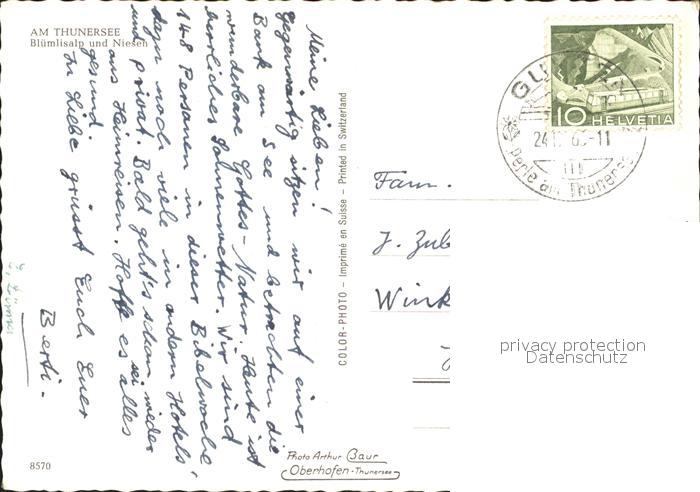 AM THUNERSEE
Blümlisalp und Niesen
Meine Lieben!
Gegenwärtig sitzen wir auf einer
Bank am See und betrachten die
wunderbare Gottes-Natur. Heute ist
herrliches Sonnenwetter. Wir sind
148 Personen in dieser Bibelwoche
dazu noch viele in andern Hotels
und privat. Bald geht's schon wieder
ans Heimreisen. Hoffe es sei alles
gesund.
In Liebe grüsst Euch Euer
Berti.
8570
COLOR-PHOTO – Imprimé en Suisse – Printed in Switzerland
Photo Arthur Baur
Oberhofen-Thunersee
10 HELVETIA
GU
24 -11
Perle am Thunersee
Fam.
J. Zub
Wink
privacy protection
Datenschutz